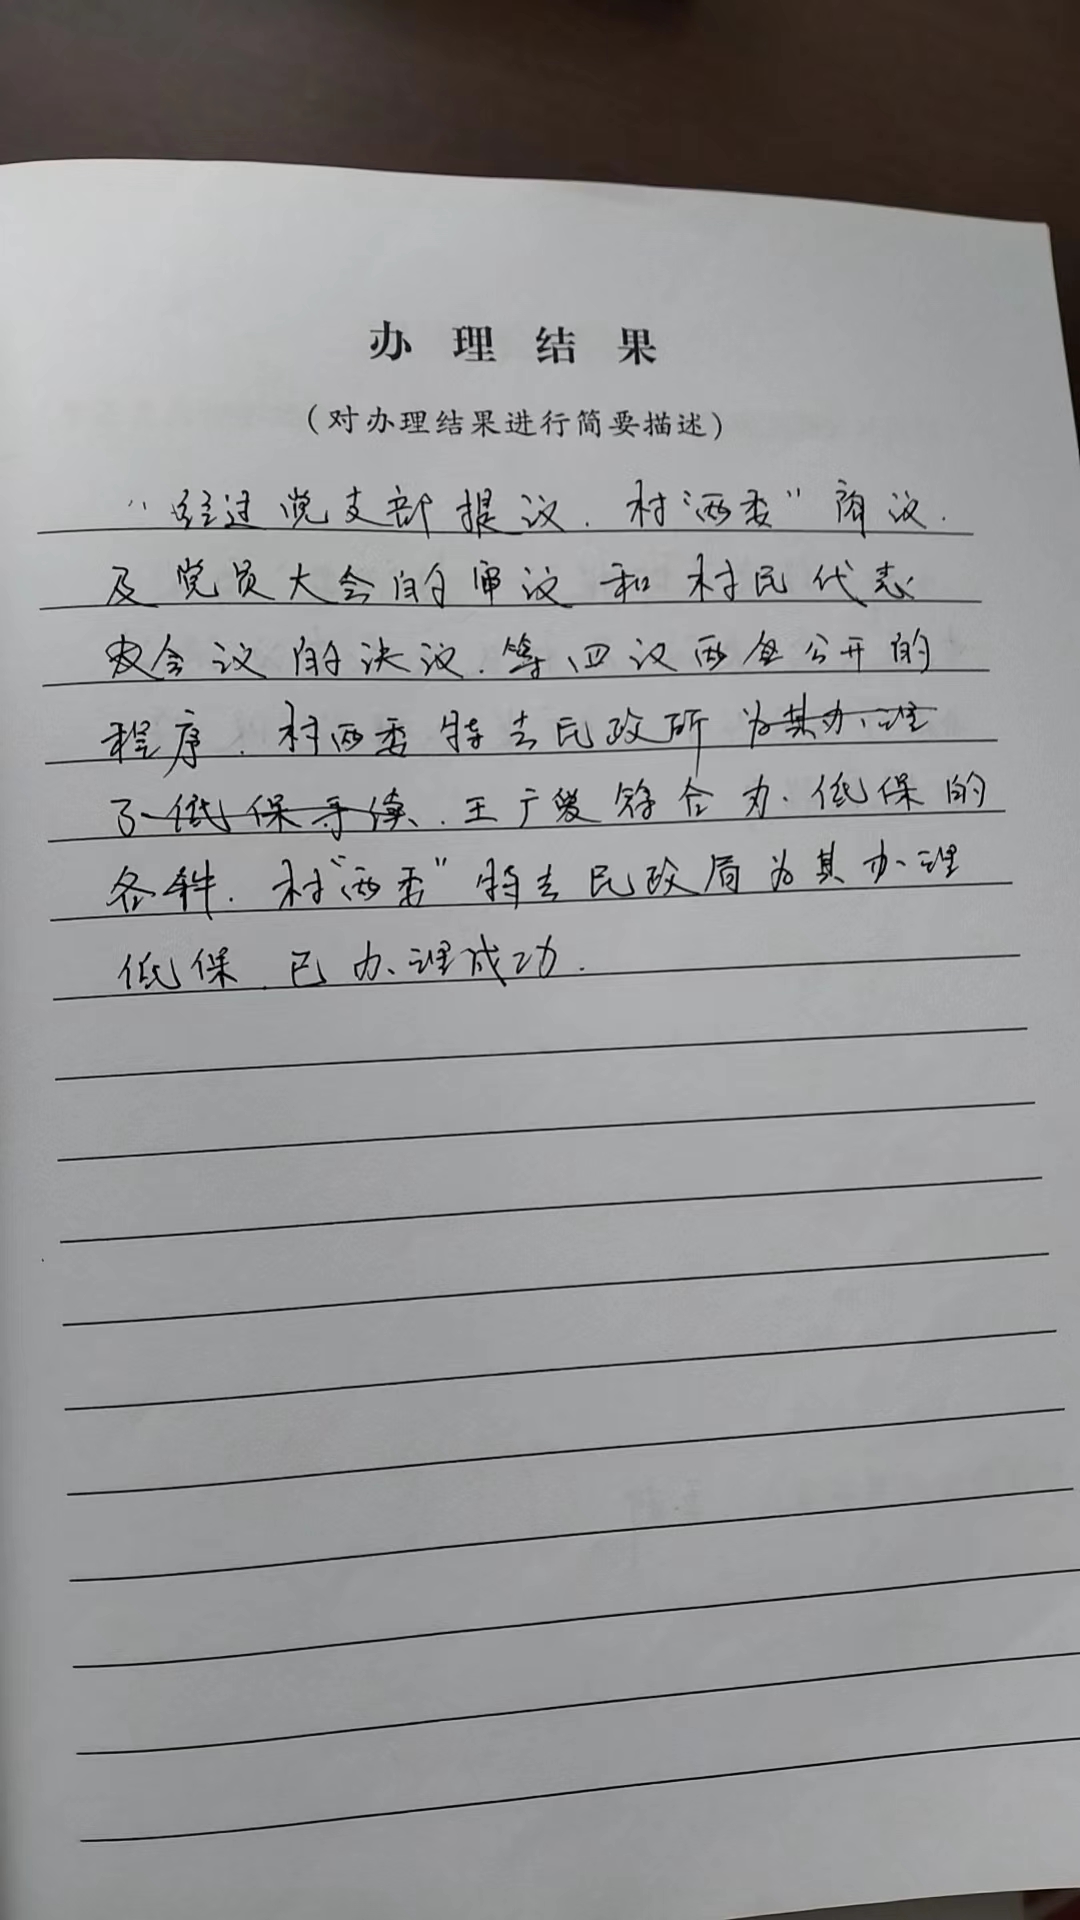 办理结果
（对办理结果进行简要描述）
“经过党支部提议．村“两委”商议．
及党员大会的审议和村民代表
会议的决议．等四议两公开的
程序．村两委特去民政所为其办理
了低保手续．王广爱符合办低保的
条件．村“两委”特去民政局为其办理
低保．已办理成功．